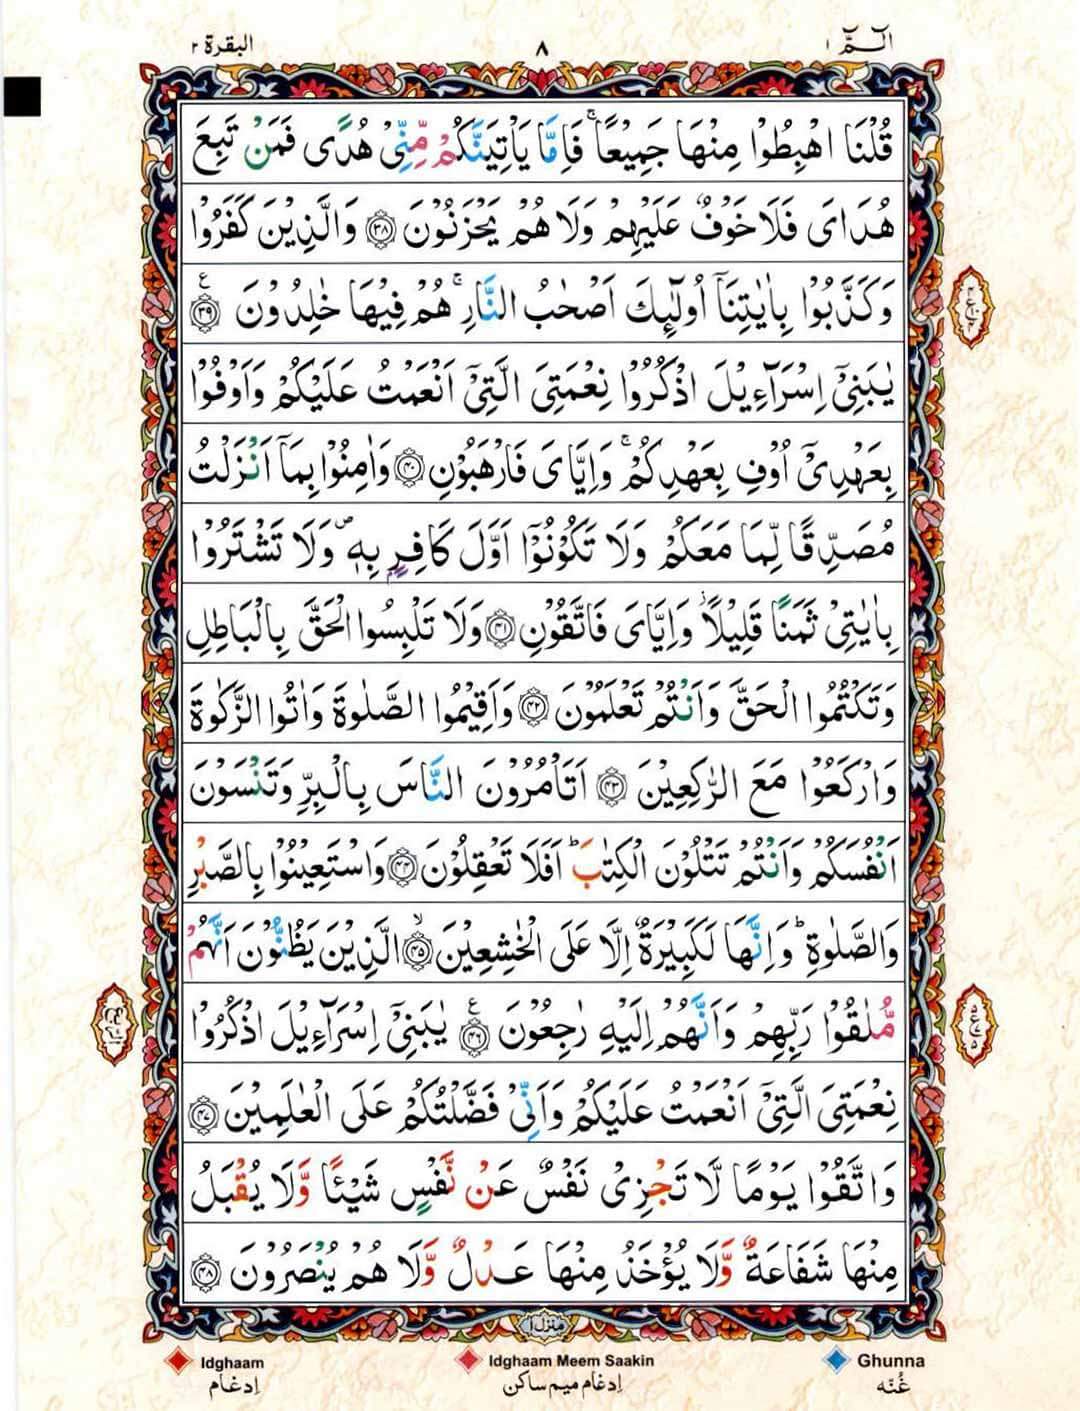 الٓمّٓ ۱ ۸ البقرة ۲
قُلْنَا اهْبِطُوْا مِنْهَا جَمِيْعًاۚ فَاِمَّا يَاْتِيَنَّكُمْ مِّنِّىْ هُدًى فَمَنْ تَبِعَ
هُدَاىَ فَلَا خَوْفٌ عَلَيْهِمْ وَلَا هُمْ يَحْزَنُوْنَ ﴿۳۸﴾ وَالَّذِيْنَ كَفَرُوْا
وَكَذَّبُوْا بِاٰيٰتِنَآ اُولٰٓئِكَ اَصْحٰبُ النَّارِۚ هُمْ فِيْهَا خٰلِدُوْنَ ﴿۳۹﴾ ع
يٰبَنِىْٓ اِسْرَآءِيْلَ اذْكُرُوْا نِعْمَتِىَ الَّتِىْٓ اَنْعَمْتُ عَلَيْكُمْ وَاَوْفُوْا
بِعَهْدِىْٓ اُوْفِ بِعَهْدِكُمْۚ وَاِيَّاىَ فَارْهَبُوْنِ ﴿۴۰﴾ وَاٰمِنُوْا بِمَآ اَنْزَلْتُ
مُصَدِّقًا لِّمَا مَعَكُمْ وَلَا تَكُوْنُوْٓا اَوَّلَ كَافِرٍۢ بِهٖ ۖ وَلَا تَشْتَرُوْا
بِاٰيٰتِىْ ثَمَنًا قَلِيْلًا ۖ وَاِيَّاىَ فَاتَّقُوْنِ ﴿۴۱﴾ وَلَا تَلْبِسُوا الْحَقَّ بِالْبَاطِلِ
وَتَكْتُمُوا الْحَقَّ وَاَنْتُمْ تَعْلَمُوْنَ ﴿۴۲﴾ وَاَقِيْمُوا الصَّلٰوةَ وَاٰتُوا الزَّكٰوةَ
وَارْكَعُوْا مَعَ الرّٰكِعِيْنَ ﴿۴۳﴾ اَتَاْمُرُوْنَ النَّاسَ بِالْبِرِّ وَتَنْسَوْنَ
اَنْفُسَكُمْ وَاَنْتُمْ تَتْلُوْنَ الْكِتٰبَؕ اَفَلَا تَعْقِلُوْنَ ﴿۴۴﴾ وَاسْتَعِيْنُوْا بِالصَّبْرِ
وَالصَّلٰوةِؕ وَاِنَّهَا لَكَبِيْرَةٌ اِلَّا عَلَى الْخٰشِعِيْنَۙ ﴿۴۵﴾ الَّذِيْنَ يَظُنُّوْنَ اَنَّهُمْ
مُّلٰقُوْا رَبِّهِمْ وَاَنَّهُمْ اِلَيْهِ رٰجِعُوْنَ ﴿۴۶﴾ ع يٰبَنِىْٓ اِسْرَآءِيْلَ اذْكُرُوْا
نِعْمَتِىَ الَّتِىْٓ اَنْعَمْتُ عَلَيْكُمْ وَاَنِّىْ فَضَّلْتُكُمْ عَلَى الْعٰلَمِيْنَ ﴿۴۷﴾
وَاتَّقُوْا يَوْمًا لَّا تَجْزِىْ نَفْسٌ عَنْ نَّفْسٍ شَيْئًا وَّلَا يُقْبَلُ
مِنْهَا شَفَاعَةٌ وَّلَا يُؤْخَذُ مِنْهَا عَدْلٌ وَّلَا هُمْ يُنْصَرُوْنَ ﴿۴۸﴾
منزل ۱
Ghunna Idghaam Meem Saakin Idghaam
غُنّه اِدغام میم ساکن اِدغام